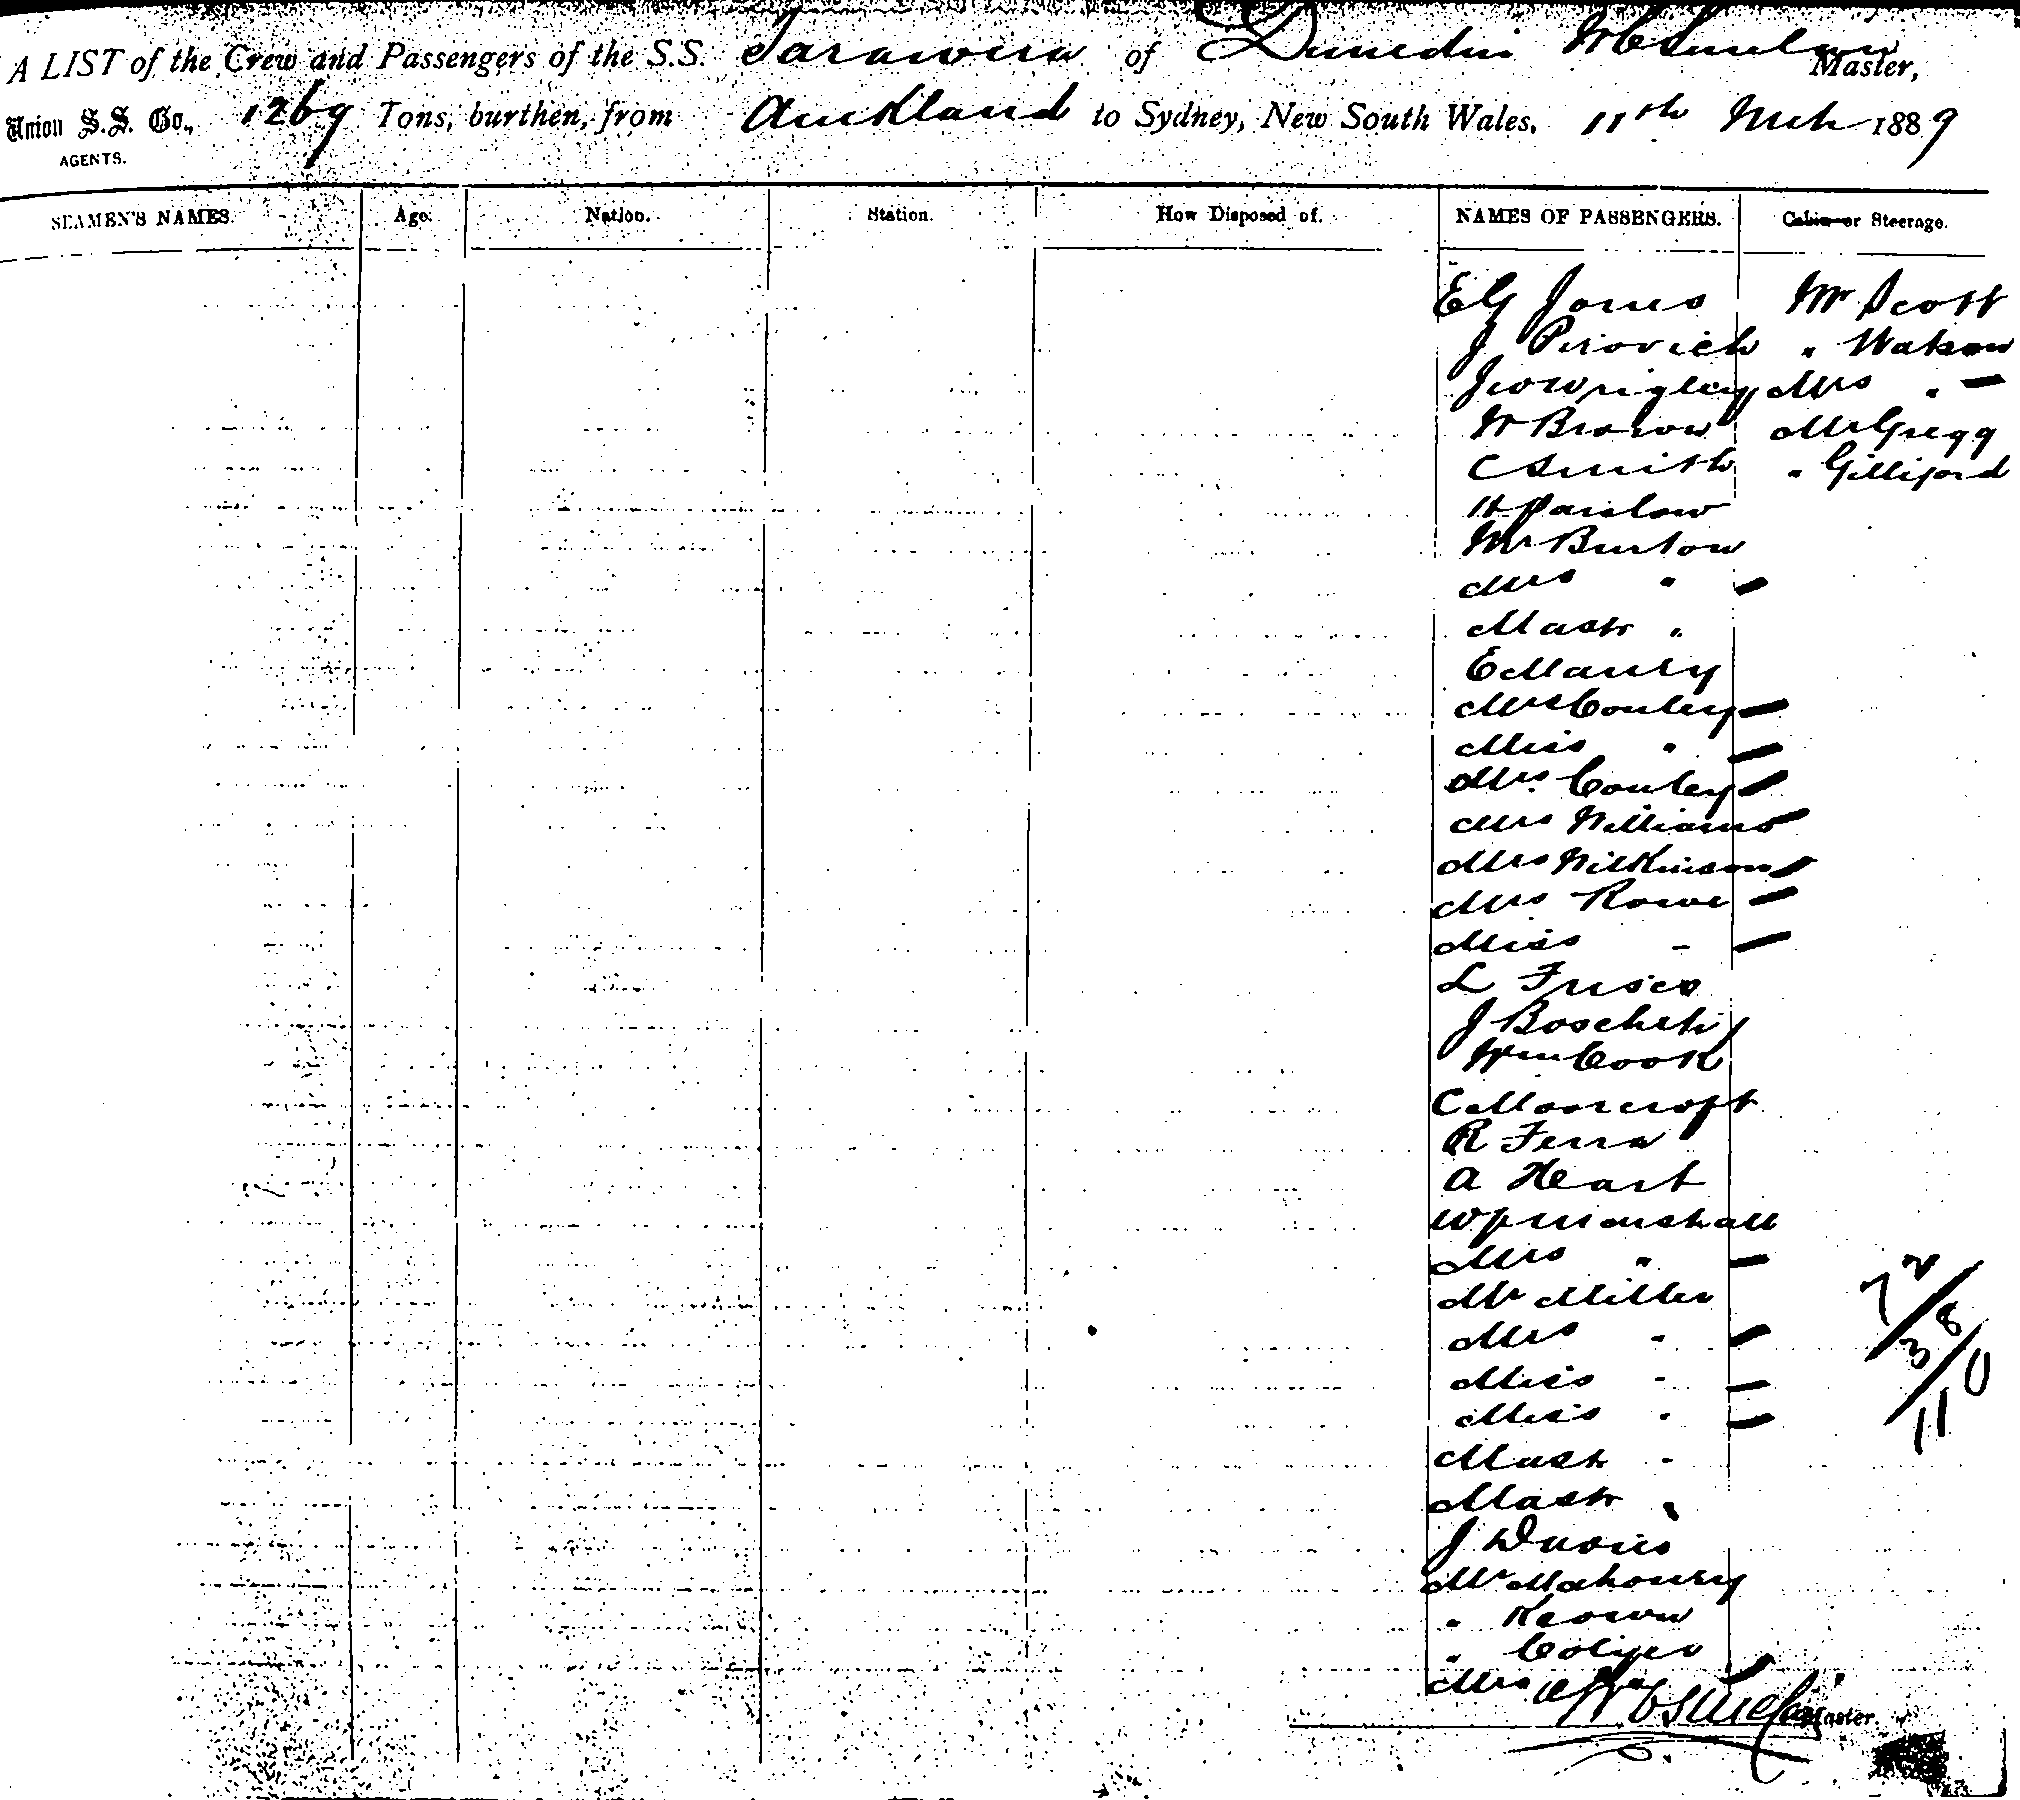 A LIST of the Crew and Passengers of the S.S. Tarawera of Dunedin Master,
Union S.S. Co., 1269 Tons, burthen, from Auckland to Sydney, New South Wales, 11th Mch 1889
AGENTS.
SEAMEN'S NAMES. Age. Nation. Station. How Disposed of. NAMES OF PASSENGERS. Cabin or Steerage.
EG Jones Mr Scott
J Perovich " Watson
Jno Wrigley Mrs "
W Brown Mr Gregg
C Smith " Gilliford
H Parslow
Mr Burton
Mrs "
Mastr "
E Manly
Mrs Conley
Miss "
Mrs. Conley
Mrs Williams
Mrs Wilkinson
Mrs Rowe
Miss "
L Frisco
J Boscheti
Wm Cook
C Moorcroft
R Ferra
A Heart
WJ Marshall
Mrs "
Mr Miller
Mrs "
Miss "
Miss "
Mastr "
Mastr "
J Davies
Mr Mahoney
" Keown
" Colyer
Mrs
Master
72
38
110